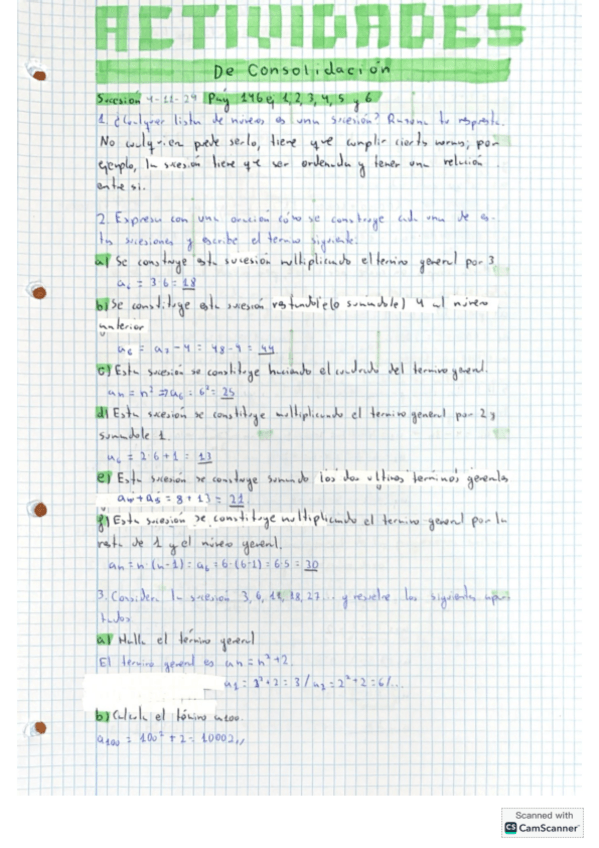 ACTIVIDADES
De Consolidación
Sucesión 4-11-24 Pag 146 ej 1, 2, 3, 4, 5 y 6
1. ¿Cualquier lista de números es una sucesión? Razona tu respuesta.
No cualquiera puede serlo, tiene que cumplir ciertas normas; por
ejemplo, la sucesión tiene que ser ordenada y tener una relación
entre si.
2. Expresa con una oración cómo se construye cada una de es-
tas sucesiones y escribe el termino siguiente:
a) Se construye esta sucesión multiplicando el termino general por 3
a₆ = 3·6 = 18
b) Se constituye esta sucesión restandole (o sumandole) 4 al número
anterior
= 48-4 = 44
c) Esta sucesión se constituye haciendo el cuadrado del termino general.
an = n² => a₆ = 6² = 25
d) Esta sucesión se constituye multiplicando el termino general por 2 y
sumandole 1.
a₆ = 2·6+1 = 13
e) Esta sucesión se construye sumando los dos ultimos terminos generales
a₄+a₅ = 8+13 = 21
f) Esta sucesión se constituye multiplicando el termino general por la
resta de 1 y el número general.
an = n·(n-1) = a₆ = 6·(6-1) = 6·5 = 30
3. Considera la sucesión 3, 6, 11, 18, 27... y resuelve los siguientes apar-
tados
a) Halla el término general
El termino general es an = n²+2
a₁ = 1²+2 = 3 / a₂ = 2²+2 = 6/...
b) Calcula el término a100.
a₁₀₀ = 100² + 2 = 10002,,
Scanned with
CS CamScanner